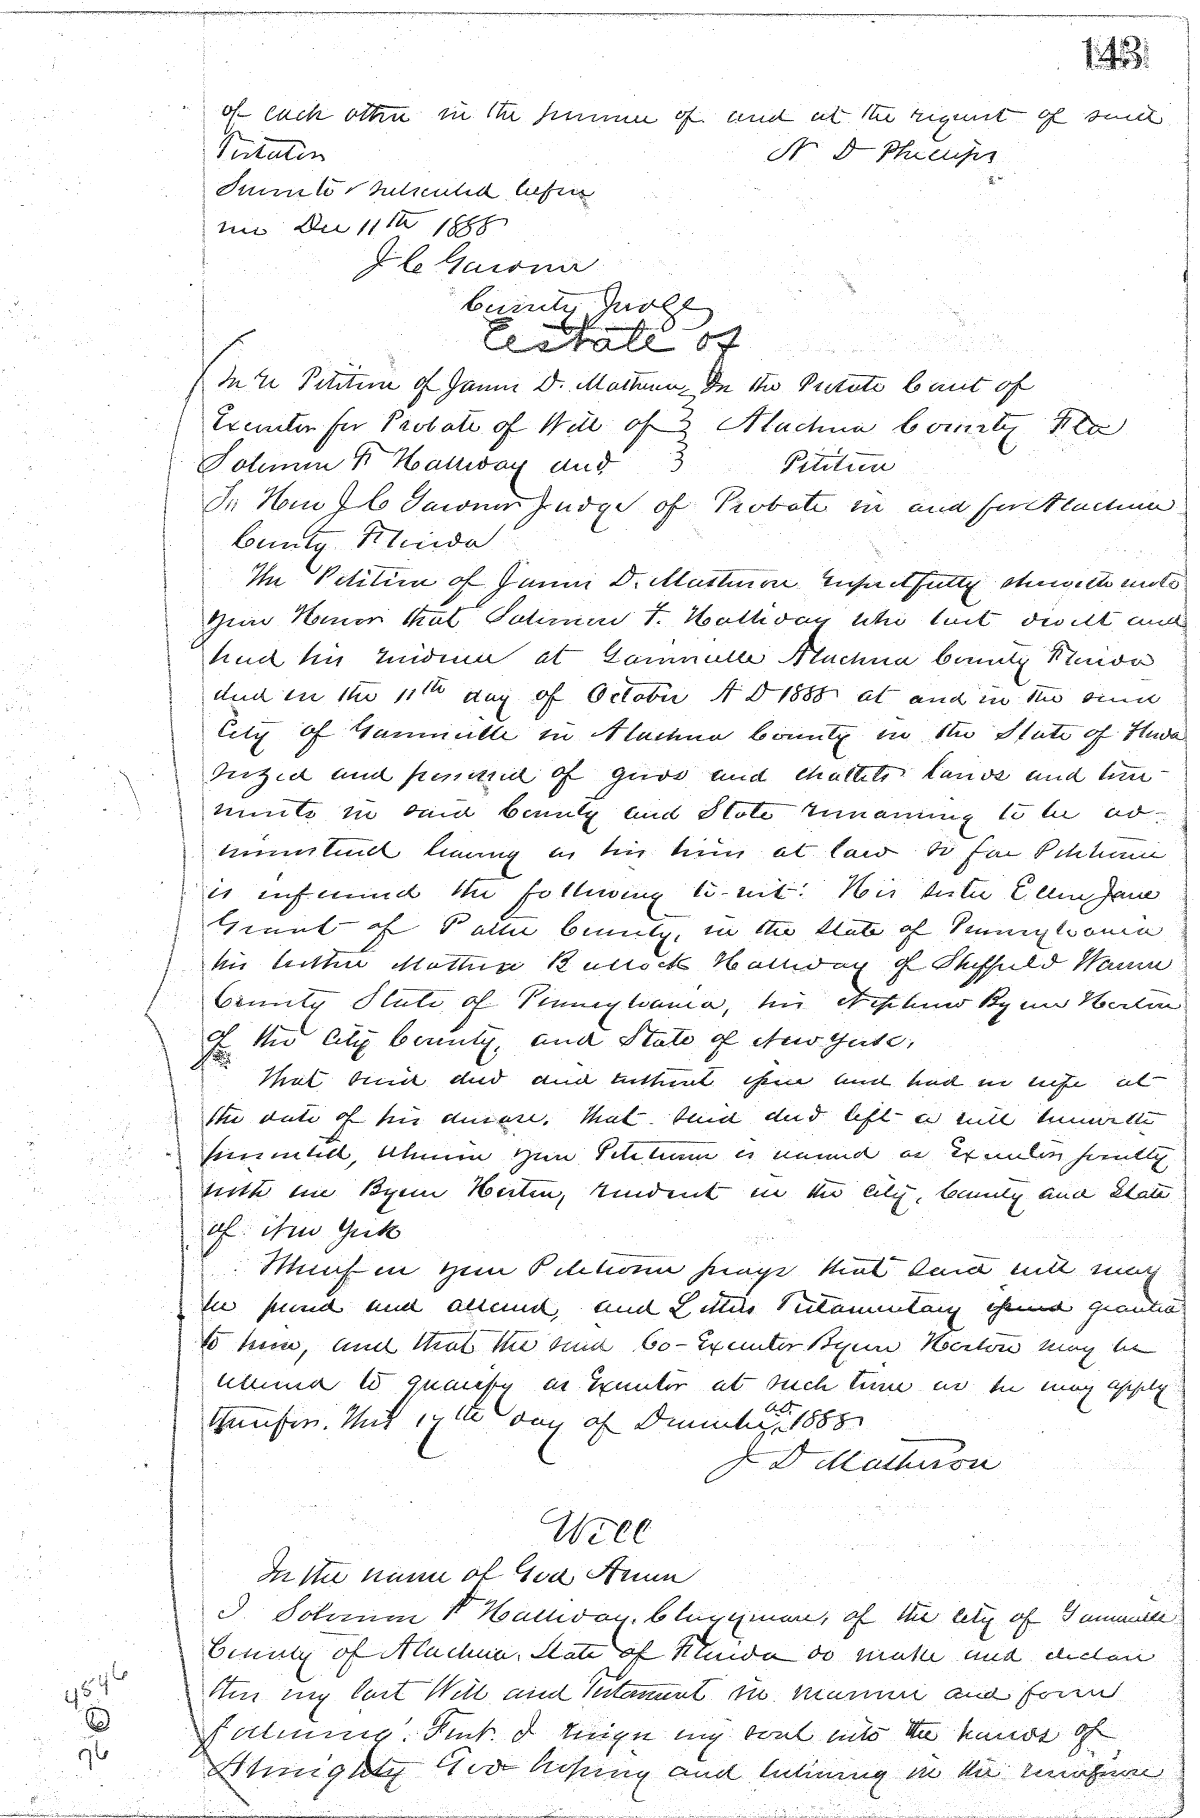 143
of each other in the presence of and at the request of said
Testator N D Phillips
Sworn to & subscribed before
me Dec 11th 1888
J C Gardner
County Judge
Estate of
In re Petition of James D. Matheson In the Probate Court of
Executor for Probate of Will of Alachua County Fla
Solomon F Halliday decd Petition
To Hon J C Gardner Judge of Probate in and for Alachua
County Florida
The Petition of James D. Matheson respectfully sheweth unto
your Honor that Solomon F. Halliday who last dwelt and
had his residence at Gainesville Alachua County Florida
died on the 11th day of October A D 1888 at and in the said
City of Gainesville in Alachua County in the State of Florida
seized and possessed of goods and chattels lands and tene-
ments in said County and State remaining to be ad-
ministered leaving as his heirs at law so far Petitioner
is informed the following to-wit: His sister Ellen Jane
Grant of Potter County, in the State of Pennsylvania
his brother Mathew Bullock Halliday of Sheffield Warren
County State of Pennsylvania, his Nephew Byron Horton
of the City County, and State of New York.
That said decd died without issue and had no wife at
the date of his decease. That said decd left a will herewith
presented, wherein your Petitioner is named as Executor jointly
with one Byron Horton, resident in the City, County and State
of New York
Wherefore your Petitioner prays that said will may
be proved and allowed, and Letters Testamentary issued granted
to him, and that the said Co-Executor Byron Horton may be
allowed to qualify as Executor at such time as he may apply
therefor. This 17th day of December AD. 1888
J D Matheson
Will
In the name of God Amen
I Solomon F Halliday, Clergyman, of the City of Gainesville
County of Alachua, State of Florida do make and declare
this my last Will and Testament in manner and form
following: First. I resign my soul into the hands of
Almighty God hoping and believing in the remission